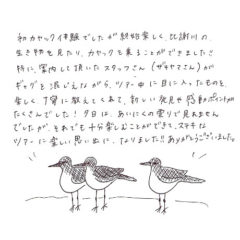 初カヤック体験でしたが終始楽しく、比謝川の
生き物を見たり、カヤックを乗ることができました!
特に、案内して頂いたスタッフさん(ザキヤマさん)が
ギャグを混じえながら、ツアー中に目に入ったものを、
楽しく丁寧に教えてくれて、新しい発見や感動ポイントが
たくさんでした!夕日は、あいにくの曇りで見れません
でしたが、それでも十分楽しむことができて、ステキな
ツアーに楽しい思い出に、なりました!!ありがとうございました。